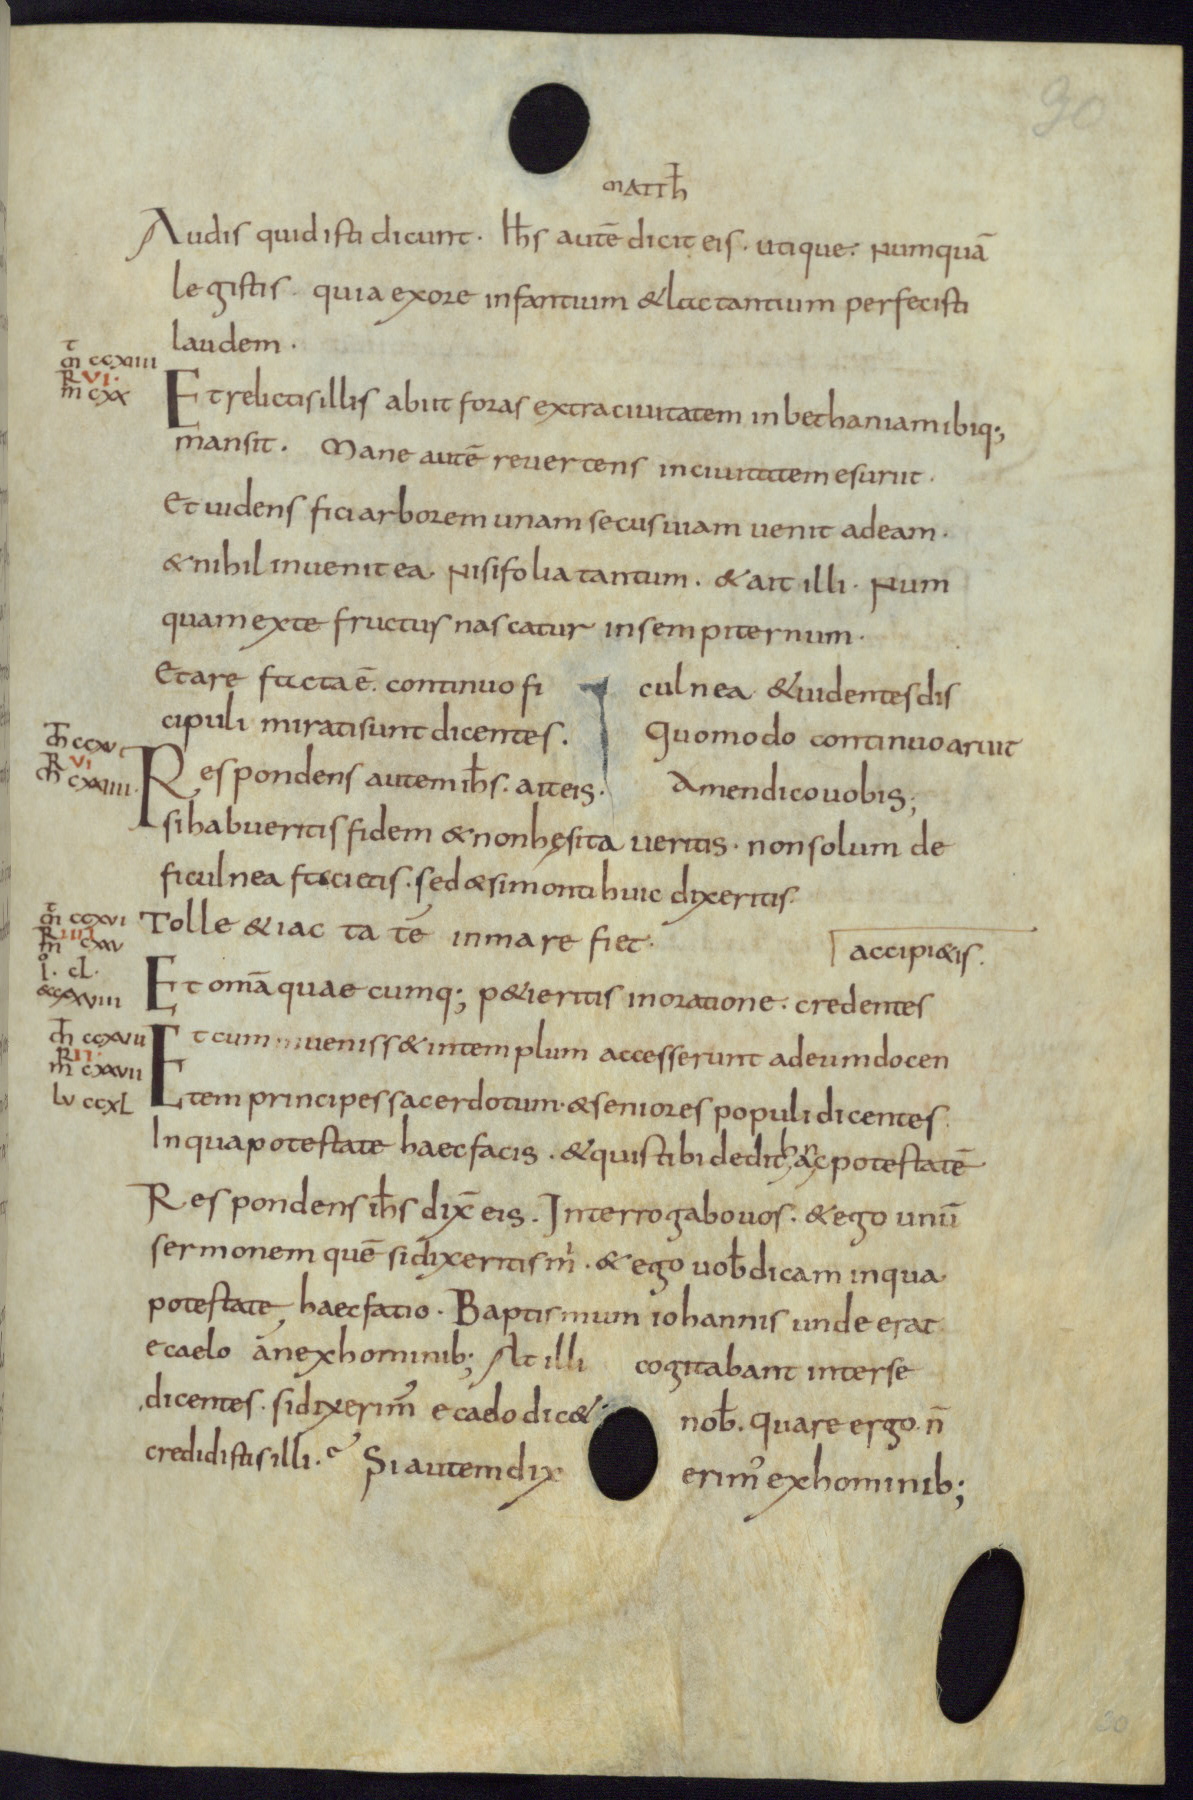 90
MATTħ
Audis quid isti dicunt. Iħs autē dicit eis. utique. Numquā
legistis. quia exore infantium & lactantium perfecisti
laudem.
t
m ccxiiii
R VI.
m cxx
Et relictis illis abiit foras extra ciuitatem in bethaniam ibiq;
mansit. Mane autē reuertens inciuitatem esuriit.
Et uidens fici arborem unam secus uiam uenit adeam.
& nihil inuenit ea. Nisi folia tantum. & ait illi. Num
quam exte fructus nascatur insempiternum.
Et are facta ē. continuo fi culnea & uidentes dis
cipuli mirati sunt dicentes. Quomodo continuo ariuit
m ccxv
R VI
m cxxiiii.
Respondens autem iħs. ait eis. Amen dico uobis;
si habueritis fidem & non hęsita ueritis. non solum de
ficulnea facietis. sed & si monti huic dixeritis.
t
m ccxvi
R IIII
m cxxv
Tolle & iac ta te in mare fiet.
accipi&is.
io. cL.
&cxxviii
Et omā quaecumq; p&ieritis in oratione. credentes
m ccxvii
R II.
m cxxvii
Et cum inueniss& intemplum accesserunt adeum docen
lv ccxL
tem principes sacerdotum. & seniores populi dicentes
In qua potestate haec facis. & quis tibi dedit hanc potestatē
Respondens iħs dix̄ eis. Interrogabo uos. & ego unū
sermonem quē si dixeritis m̄. & ego uob̄ dicam in qua
potestate, haec fatio. Baptismum iohannis unde erat
e caelo an exhominib; At illi cogitabant interse
dicentes. si dixerim᾽ e caelo dic& nob̄. quare ergo n̄
credidistis illi. Si autem dix erim᾽ exhominib;